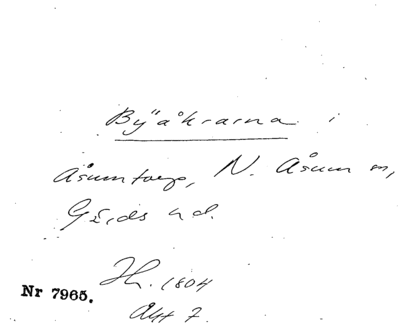 Byåkrarna i
Åsumtorp, N. Åsum sn,
Gärds hd.
Jh. 1804
Akt 7.
Nr 7965.